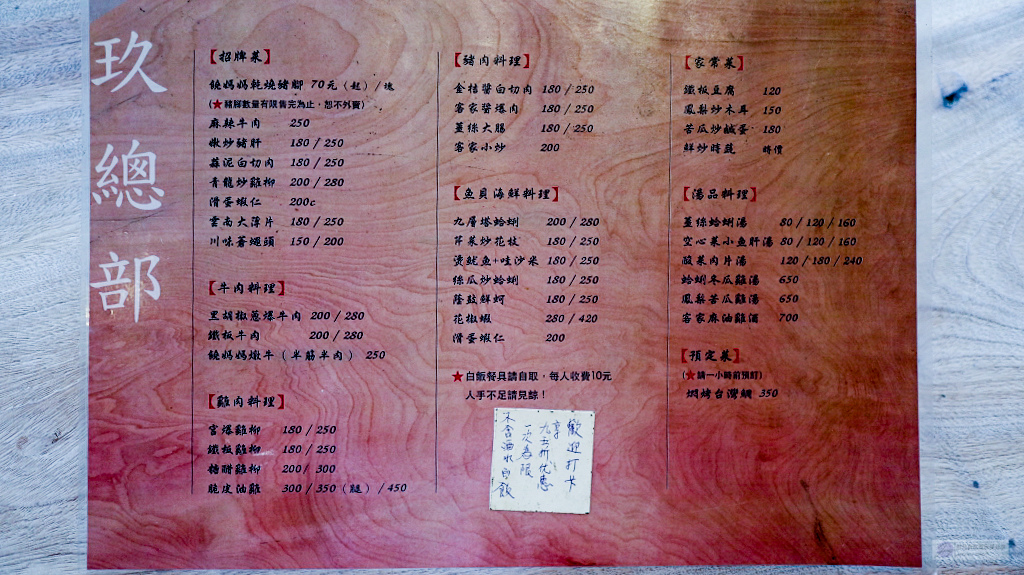 玖總部
【招牌菜】
饒媽媽乾燒豬腳 70元（起）/ 塊
（★豬腳數量有限售完為止，恕不外賣）
麻辣牛肉 250
嫩炒豬肝 180 / 250
蒜泥白切肉 180 / 250
青龍炒雞柳 200 / 280
滑蛋蝦仁 200c
雲南大薄片 180 / 250
川味蒼蠅頭 150 / 200
【牛肉料理】
黑胡椒蔥爆牛肉 200 / 280
鐵板牛肉 200 / 280
饒媽媽燉牛（半筋半肉） 250
【雞肉料理】
宮爆雞柳 180 / 250
鐵板雞柳 180 / 250
糖醋雞柳 200 / 300
脆皮油雞 300 / 350（腿）/ 450
【豬肉料理】
金桔醬白切肉 180 / 250
客家醬爆肉 180 / 250
薑絲大腸 180 / 250
客家小炒 200
【魚貝海鮮料理】
九層塔蛤蜊 200 / 280
芹菜炒花枝 180 / 250
燙魷魚+哇沙米 180 / 250
絲瓜炒蛤蜊 180 / 250
蔭豉鮮蚵 180 / 250
花椒蝦 280 / 420
滑蛋蝦仁 200
★白飯餐具請自取，每人收費10元
人手不足請見諒！
歡迎打卡
享九五折优惠
一次為限
不含酒水白飯
【家常菜】
鐵板豆腐 120
鳳梨炒木耳 150
苦瓜炒鹹蛋 180
鮮炒時蔬 時價
【湯品料理】
薑絲蛤蜊湯 80 / 120 / 160
空心菜小魚肝湯 80 / 120 / 160
酸菜肉片湯 120 / 180 / 240
蛤蜊冬瓜雞湯 650
鳳梨苦瓜雞湯 650
客家麻油雞酒 700
【預定菜】
（★請一小時前預訂）
焗烤台灣鯛 350